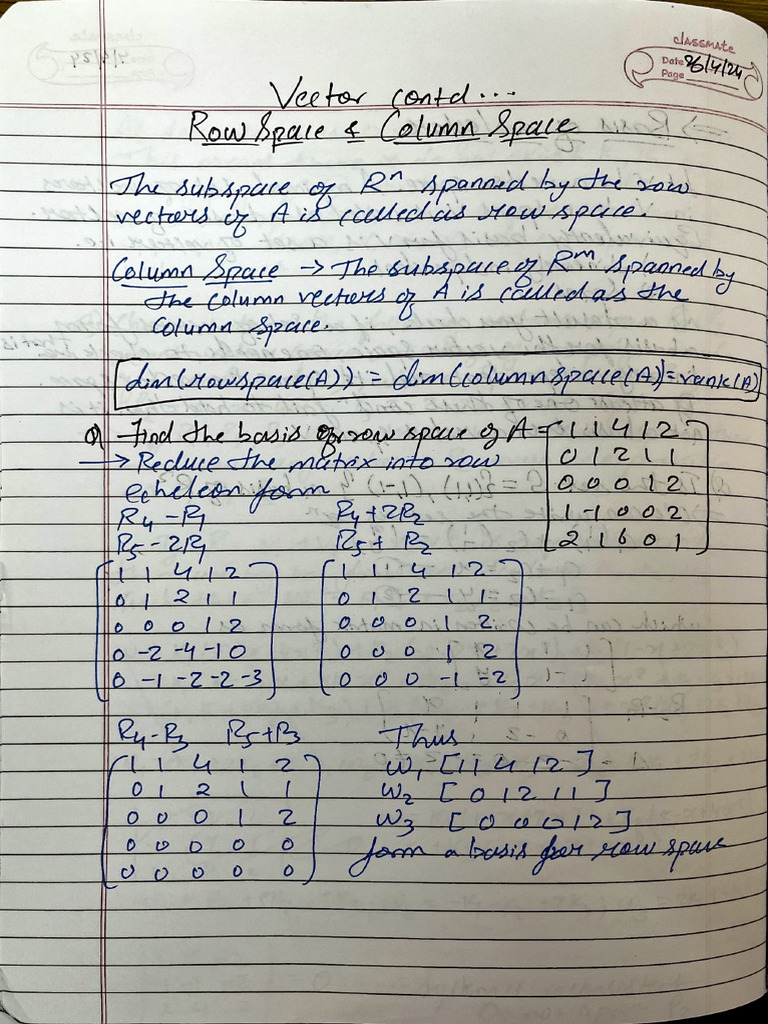 classmate
Date 26/4/24
Page
Vector contd...
Row Space & Column Space
The subspace of Rⁿ spanned by the row
vectors of A is called as row space.
Column Space → The subspace of Rᵐ spanned by
the column vectors of A is called as the
Column Space.
dim(rowspace(A)) = dim(column space(A)) = rank(A)
Q Find the basis of row space of A = [1 1 4 1 2
→ Reduce the matrix into row 0 1 2 1 1
echeleon form 0 0 0 1 2
R₄ - R₁ R₄ + 2R₂ 1 -1 0 0 2
R₅ - 2R₁ R₅ + R₂ 2 1 6 0 1]
[1 1 4 1 2 [1 1 4 1 2
0 1 2 1 1 0 1 2 1 1
0 0 0 1 2 0 0 0 1 2
0 -2 -4 -1 0 0 0 0 1 2
0 -1 -2 -2 -3] 0 0 0 -1 -2]
R₄ - R₃ R₅ + R₃ Thus
[1 1 4 1 2 w₁ [1 1 4 1 2]
0 1 2 1 1 w₂ [0 1 2 1 1]
0 0 0 1 2 w₃ [0 0 0 1 2]
0 0 0 0 0 form a basis for row space
0 0 0 0 0]